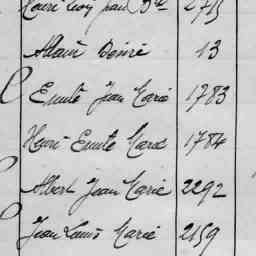 Louis Léon Paul
Allain Désiré 13
Emile Jean Marie 1783
Henri Emile Marie 1784
Albert Jean Marie 2292
Jean Louis Marie 2159